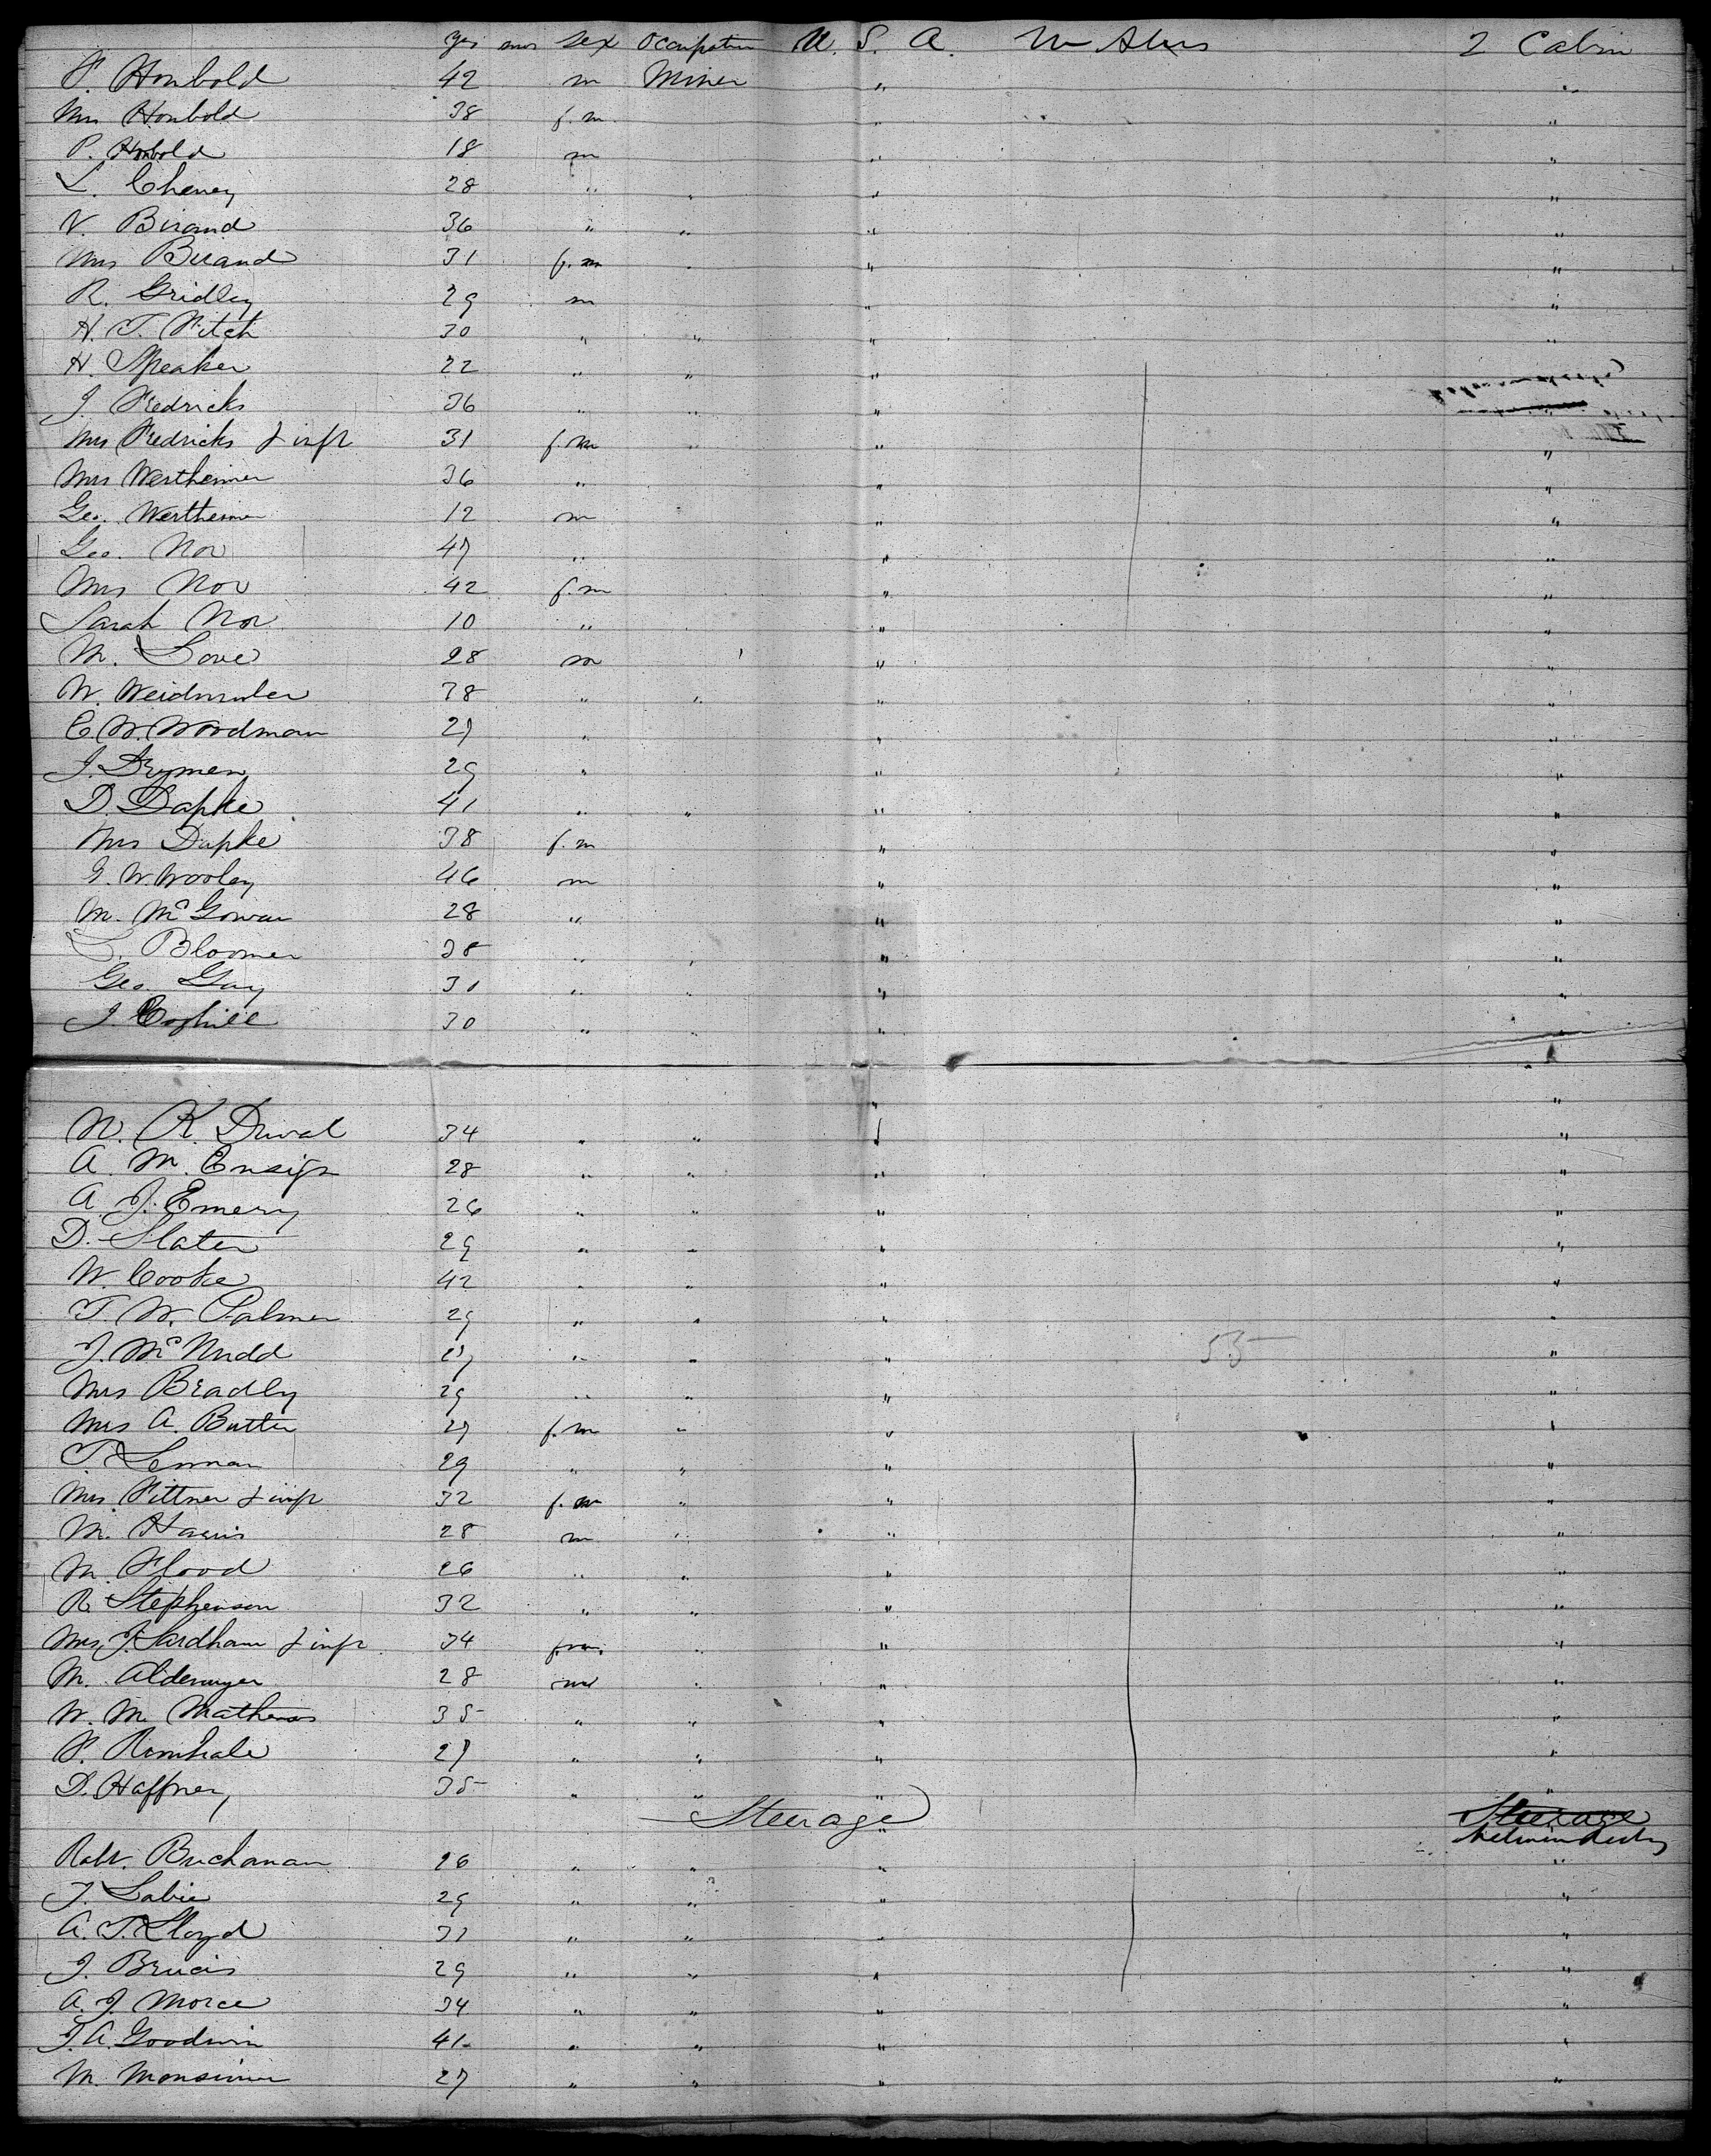 yrs mos Sex Occupation U. S. A. 2 Cabin
F. Honbold 42 m Miner " "
Mrs Honbold 38 f.m " "
P. Honbold 18 m " "
L. Cheney 28 " " " "
V. Birand 36 " " " "
Mrs Birand 31 f.m " " "
R. Gridley 29 m " "
H. T. Fitch 30 " " " "
H. Speaker 22 " " " "
J. Fredricks 36 " " " "
Mrs Fredricks & inft 31 f.m " " "
Mrs Wertheimer 36 " " "
Geo. Wertheimer 12 m " "
Geo. Nor 47 " " "
Mrs Nor 42 f.m " "
Sarah Nor 10 " " "
M. Love 28 m " "
W. Weidmuler 38 " " " "
C. W. Woodman 27 " " "
J. Drymen 29 " " "
D. Dapke 41 " " " "
Mrs Dapke 38 f.m " "
G. W. Wooley 46 m " "
M. McGowan 28 " " "
L. Bloomer 38 " " " "
Geo. Gay 31 " " " "
J. Coghill 30 " " " "
" "
N. K. Duval 34 " " "
A. M. Ensign 28 " " " "
A. J. Emery 26 " " " "
D. Slater 29 " " " "
W. Cooke 42 " " " "
T. W. Palmer 29 " " " "
J. McNudd " " " 55 "
Mrs Bradly 29 " " " "
Mrs A. Butter 27 f.m " " "
T. Lennan 29 " " " "
Mrs. Fittner & inft 32 f.m " " "
M. Harris 28 m " " "
M. Flood 26 " " " "
R. Stephenson 32 " " " "
Mrs J. Sardham & inft 34 f.m. " " "
M. Aldemyer 28 m " " "
W. M. Mathews 35 " " " "
F. 27 " " " "
D. Haffney 35 " " " "
Steerage " Steerage
Between Decks
Robt. Buchanan 26 " " " "
J. Labie 29 " " " "
A. T. Lloyd 31 " " " "
J. Brucis 29 " " " "
A. J. Morce 34 " " " "
J. A. Goodwin 41 " " " "
M. Monsimer 27 " " " "